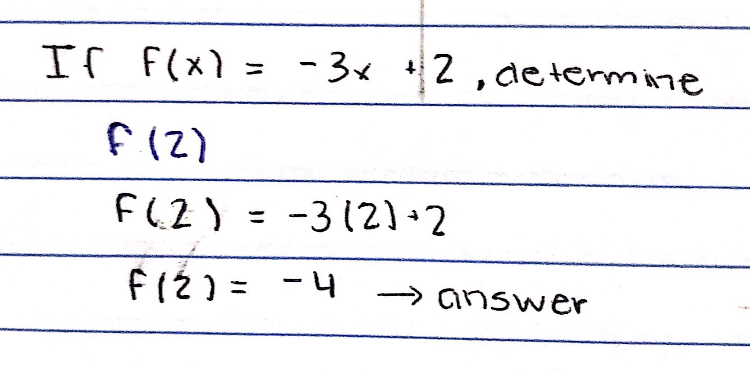 If f(x) = -3x + 2, determine
f(2)
f(2) = -3(2)+2
f(2) = -4 → answer